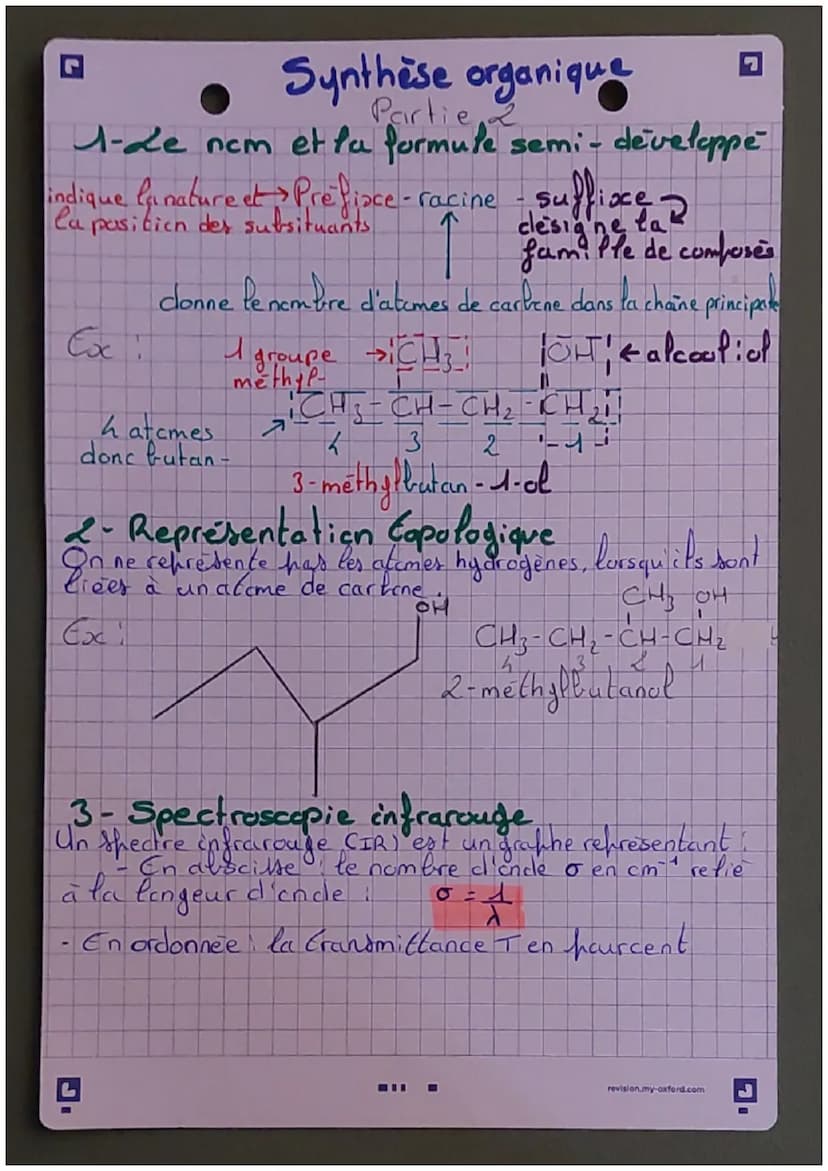 Synthèse organique
Partie 2
1-Le nom et la formule semi-développé
indique la nature et → Préfixe - racine - suffixe
la position des subsituants
désigne la
famille de composés
donne le nombre d'atomes de carbone dans la chaîne principale
Ex :
1 groupe → CH3 OH ← alcool iol
méthyl-
CH3 - CH - CH2 - CH2
4 atomes 4 3 2 1
donc butan-
3-méthylbutan-1-ol
2- Représentation topologique
On ne représente pas les atomes hydrogènes, lorsqu'ils sont
liées à un atome de carbone.
OH
CH3 OH
Ex :
CH3-CH2-CH-CH2
4 3 2 1
2-méthylbutanol
3- Spectroscopie infrarouge
Un spectre infrarouge (IR) est un graphe représentant :
- En abscisse : le nombre d'onde σ en cm⁻¹ relié
à la longeur d'onde : σ = 1/λ
- En ordonnée : la transmittance T en pourcent
revision.my-oxford.com